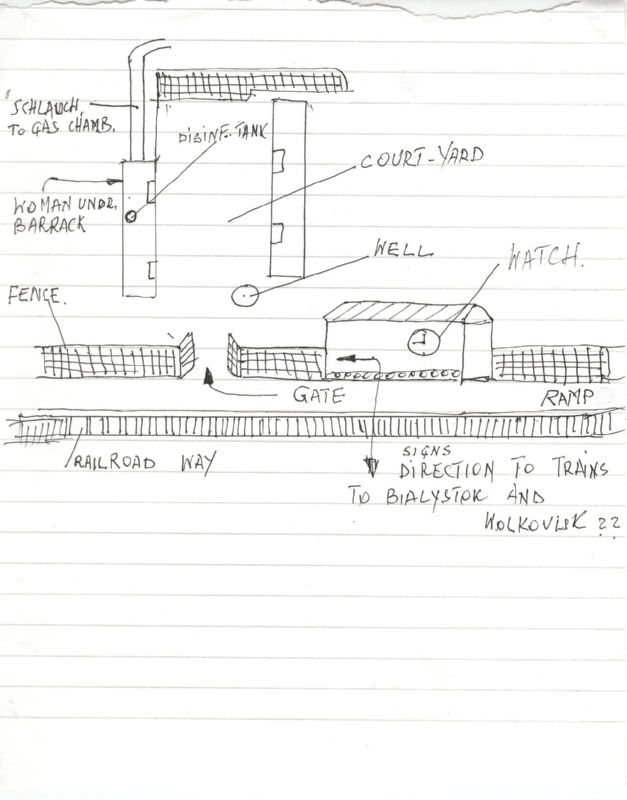 "SCHLAUCH,
TO GAS CHAMB.
DISINF. TANK
COURT-YARD
WOMAN UNDR.
BARRACK
WELL
WATCH.
FENCE.
GATE
RAMP
RAILROAD WAY
SIGNS
DIRECTION TO TRAINS
TO BIALYSTOK AND
WOLKOVISK ??